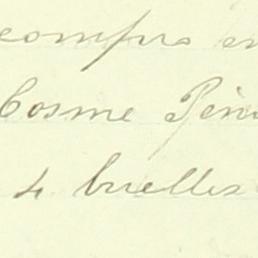 compris en
Cosme Pén
4 buelles